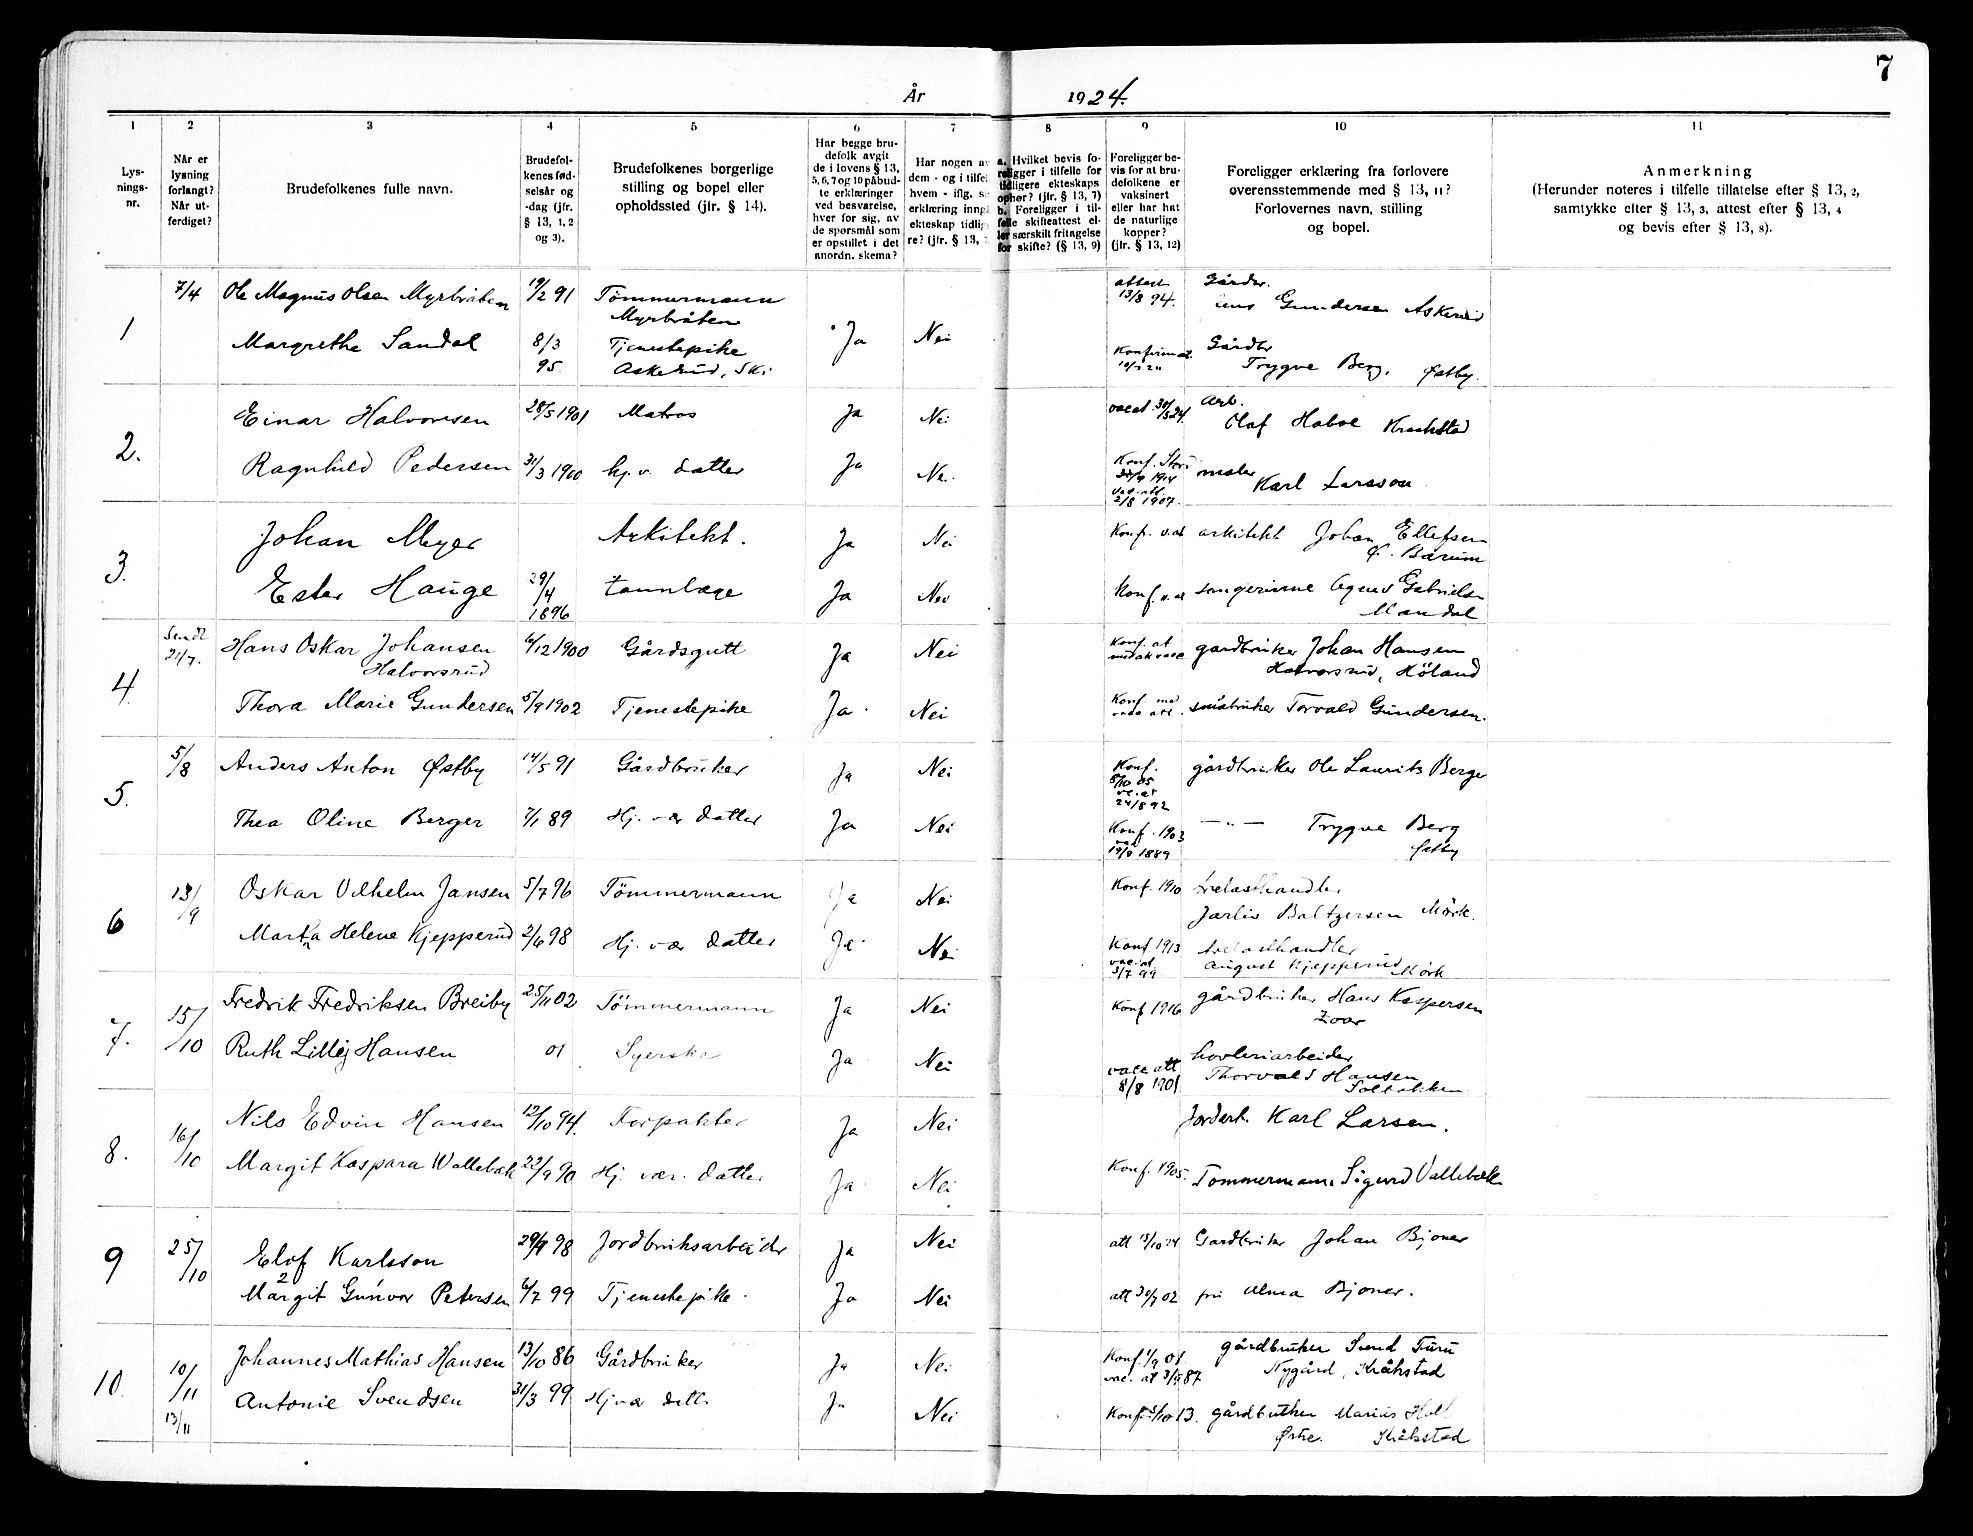 7
År 1924.
1 2 3 4 5 6 7 8 9 10 11
Lys-
nings-
nr.
Når er
lysning
forlangt?
Når ut-
ferdiget?
Brudefolkenes fulle navn.
Brudefol-
kenes fød-
selsår og
-dag (jfr.
§ 13, 1, 2
og 3).
Brudefolkenes borgerlige
stilling og bopel eller
opholdssted (jfr. § 14).
Har begge bru-
defolk avgit
de i lovens § 13,
5, 6, 7 og 10 påbud-
te erklæringer
ved besvarelse,
hver for sig, av
de spørsmål som
er opstillet i det
anordn. skema?
Har nogen av
dem - og i tilfel
hvem - iflg. s
erklæring innp
ekteskap tidlig
re? (jfr. § 13,
a. Hvilket bevis fo-
religger i tilfelle for
tidligere ekteskaps
ophør? (jfr. § 13, 7)
b. Foreligger i til-
felle skifteattest el-
ler særskilt fritagelse
for skifte? (§ 13, 9)
Foreligger be-
vis for at bru-
defolkene er
vaksinert
eller har hat
de naturlige
kopper?
(jfr. § 13, 12)
Foreligger erklæring fra forlovere
overensstemmende med § 13, 11?
Forlovernes navn, stilling
og bopel.
Anmerkning
(Herunder noteres i tilfelle tillatelse efter § 13, 2,
samtykke efter § 13, 3, attest efter § 13, 4
og bevis efter § 13, 8).
1 7/4 Ole Magnus Olsen Myrbråten 19/2 91 Tömmermann
Myrbråten
Ja Nei attest
13/8 94. Gårdbr.
Gundersen Askerud
Margrethe Sandal 8/3
95. Tjenestepike
Askerud, Ski
Konfirmat. Gårdbr
Trygve Berg, Østby.
2. Einar Halvorsen 28/5 1901 Matros Ja Nei vac at. 30/5 24. Arb.
Olaf Haboe Kraakstad
Ragnhild Pedersen 31/3 1900 hj. v. datter Ja Nei Konf.
1914
vac. att.
2/8 1907. maler
Karl Larsson
3. Johan Meyer Arkitekt. Ja Nei Konf. v. at arkitekt Johan Ellefsen
Ø. Bærum
Ester Hauge 29/4
1896 tannlæge Ja Nei Konf. v. at sangerinne Agnes Gabrielsen
Mandal
4. Sendt
21/7. Hans Oskar Johansen
Halvorsrud 6/12 1900 Gårdsgutt Ja Nei Konf. at
gardbruker Johan Hansen
Halvorsrud, Höland
Thora Marie Gundersen 5/9 1902 Tjenestepike Ja Nei Konf. småbruker Torvald Gundersen.
5. 5/8 Anders Anton Østby 14/5 91 Gårdbruker Ja Nei Konf.
8/10 05
vc. at
24/8 92 gårdbruker Ole Laurits Berger
Thea Oline Berger 7/1 89 Hj. vær datter Ja Nei Konf. 1903
vac
1889 — " — Trygve Berg
Østby
6 13/9 Oskar Vilhelm Jansen 5/7 96 Tömmermann Ja Nei Konf. 1910 trelasthandler
Jarlis Baltzersen Mörk.
Marta Helene Kjepperud 2/6 98 Hj. vær datter Ja Nei Konf 1913
vac. at
3/7 99 trelasthandler
August Kjepperud Mörk
7. 15/10 Fredrik Fredriksen Breiby 25/11 02 Tömmermann Ja Nei Konf 1916 gårdbruker Hans Kaspersen
Zoar
Ruth Lilly Hansen 01 Syerske Ja Nei vacc att
8/8 1901 hovleriarbeider
Thorvald Hansen
Solbakken
8. 16/10 Nils Edvin Hansen 12/10 94. Forpakter Ja Nei Jordarb. Karl Larsen.
Margit Kaspara Wallebæk 22/9 90 Hj. vær. datter Ja Nei Konf. 1905. Tømmermann Sigurd Vallebæk
9 25/10 Elof Karlsson 29/9 98 Jordbruksarbeider Ja Nei att 13/10 24 Gardbruker Johan Bjoner
Margit Gunvor Petersen 6/7 99 Tjenestepike. Ja Nei att 30/7 02 fru Alma Bjoner.
10. 10/11 Johannes Mathias Hansen 13/10 86 Gårdbruker Ja Nei Konf. 1/9 01
vac. at 3/8 87. gårdbruker Svend Furu
Nygård, Kråkstad
13/11 Antonie Svendsen 31/3 99. Hj vær datt. Ja Nei Konf. 5/10 13. gårdbruker Marius Holt
Østre. Kråkstad